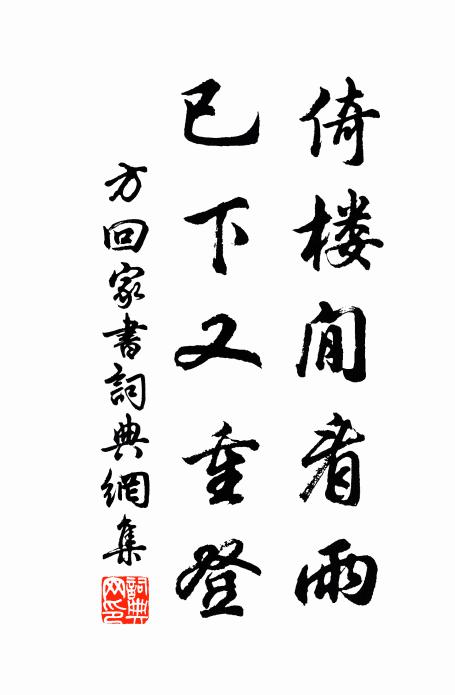 倚楼闲看雨
已下又重登
方回家書詞典網集
詞典網印